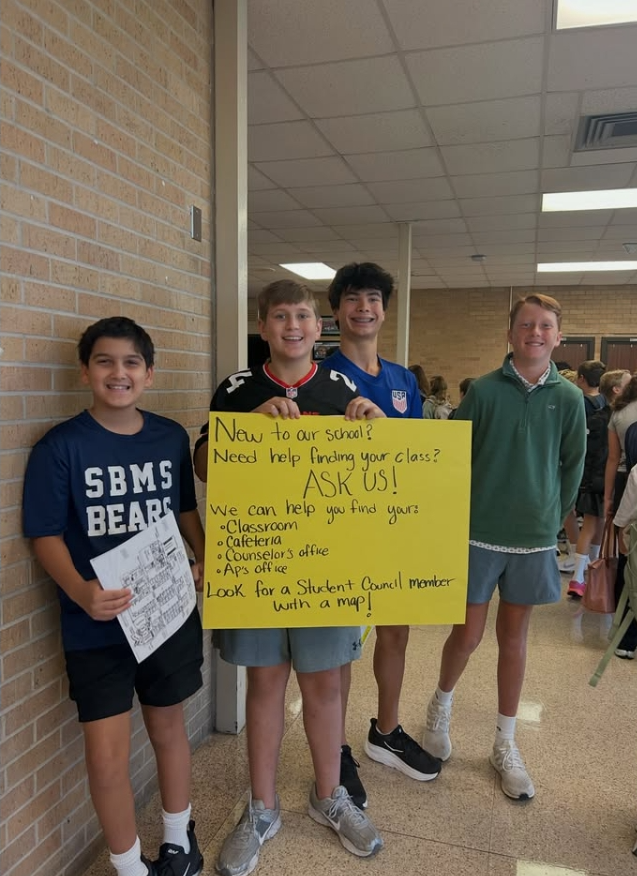 New to our school?
Need help finding your class?
ASK US!
We can help you find your:
•Classroom
•Cafeteria
•Counselor's office
•Ap's office
Look for a Student Council member
with a map!
SBMS
BEARS
24
2
USA